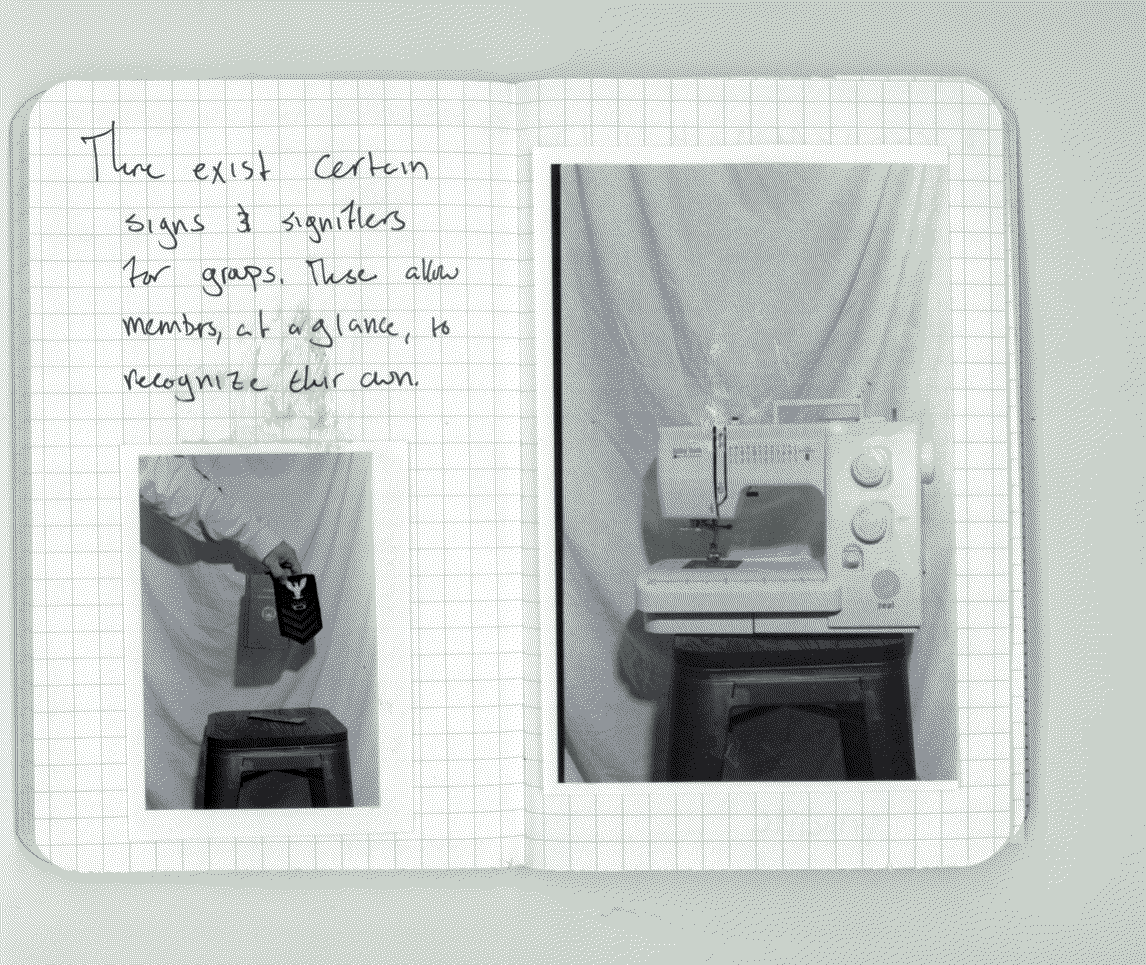 There exist certain
signs & signifiers
for groups. These allow
members, at a glance, to
recognize their own.